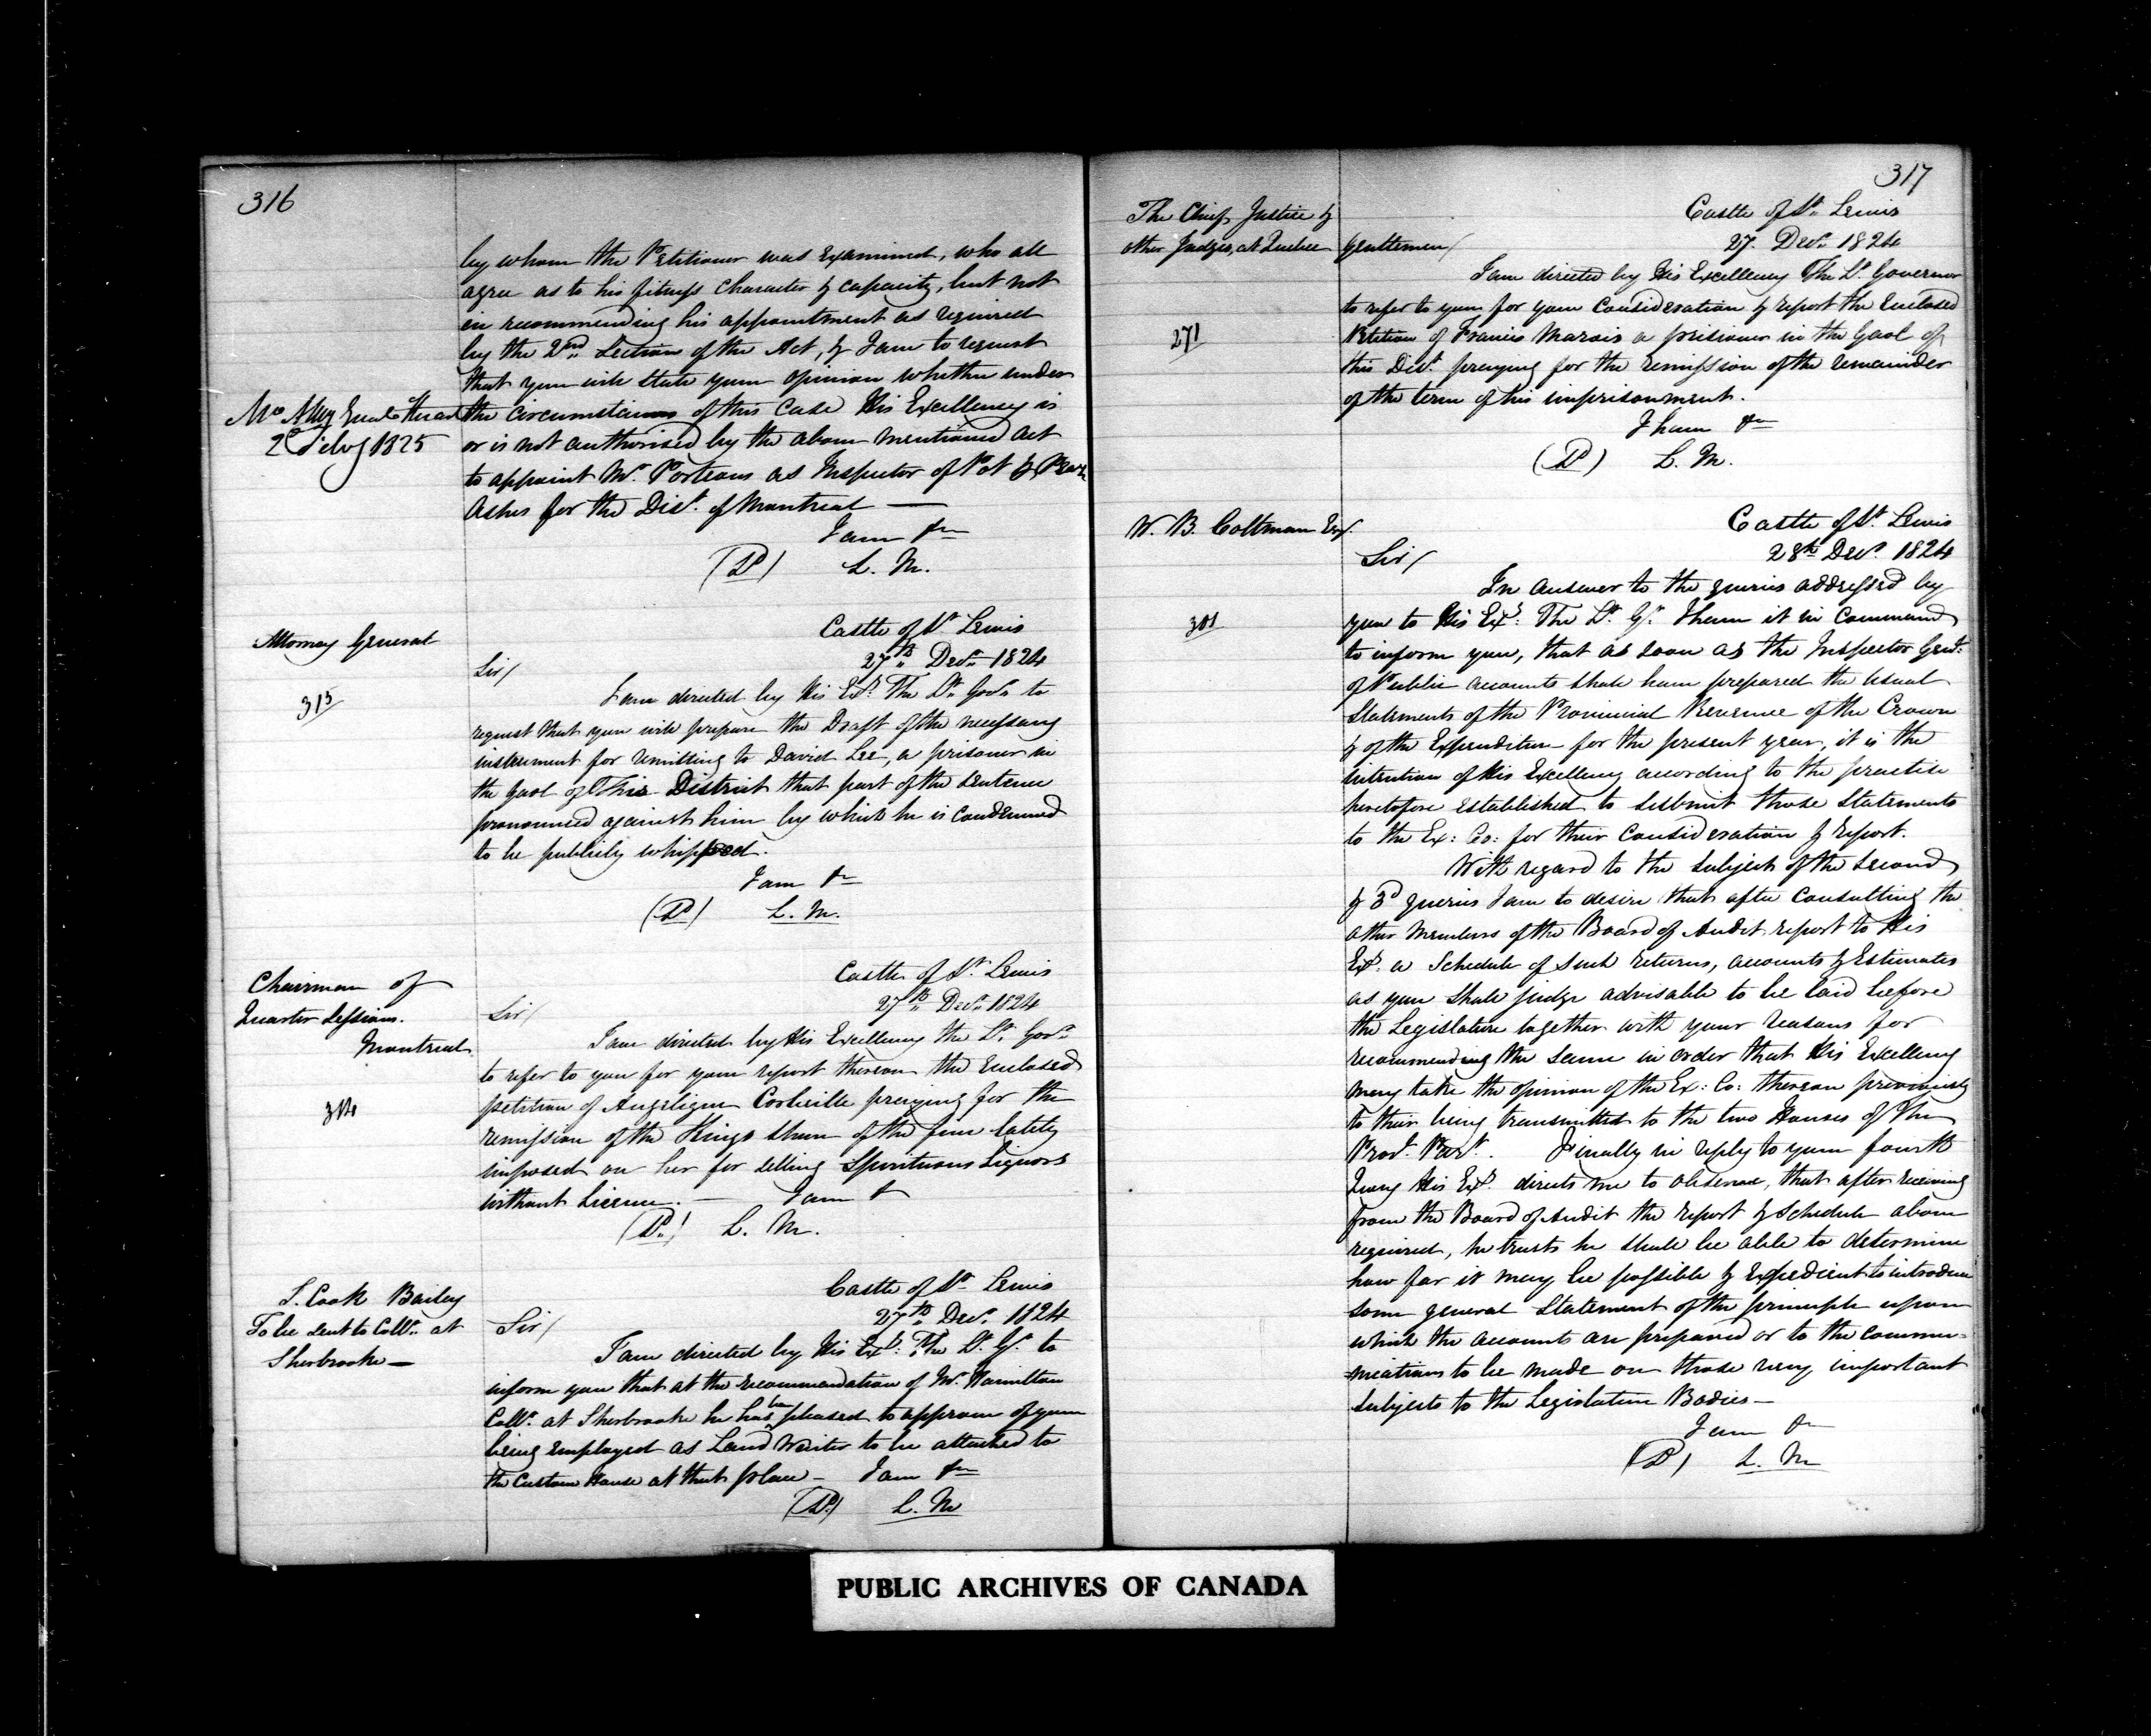 316
by whom the Petitioner was Examined, who all
agree as to his fitness Character & capacity, but not
in recommending his appointment as required
by the 2nd Section of the Act, & I am to request
that you will state your opinion whether under
the circumstances of this Case His Excellency is
or is not authorised by the above mentioned Act
to appoint Mr. Porteous as Inspector of Pot & Pearl
Ashes for the Dist. of Montreal —
2 Feby 1825
I am &c
L. M.
Attorney General
315
Castle of St. Lewis
27th Decr. 1824
Sir/
I am directed by His Exy. The Lt. Govr. to
request that you will prepare the Draft of the necessary
instrument for remitting to David Lee, a prisoner in
the gaol of this District that part of the sentence
pronounced against him by which he is condemned
to be publicly whipped.
I am &c
L. M.
Chairman of
Quarter Sessions.
Montreal
314
Castle of St. Lewis
27th Decr. 1824
Sir/
I am directed by His Excellency the Lt. Govr.
to refer to you for your report thereon the Enclosed
petition of Angelique Corbeille praying for the
remission of the Kings share of the fine lately
imposed on her for selling Spirituous Liquors
without Licence. — I am &
L. M.
S. Cook Bailey
To be sent to Collr. at
Sherbrooke —
Castle of St. Lewis
27th Decr. 1824
Sir/
I am directed by His Exy: The Lt. Gr. to
inform you that at the recommendation of Mr. Hamilton
Collr. at Sherbrooke he has been pleased to approve of your
being employed as Land Waiter to be attached to
the Custom House at that place — I am &c
L. M
317
The Chief Justice &
other Judges, at Quebec
271
Castle of St. Lewis
27. Decr. 1824
Gentlemen/
I am directed by His Excellency The Lt. Governor
to refer to you for your Consideration & report the Enclosed
Petition of Francis Marois a prisoner in the Gaol of
this Dist. praying for the remission of the remainder
of the term of his imprisonment.
I have &c
L. M.
W. B. Coltman Esqr.
301
Castle of St. Lewis
28th Decr. 1824
Sir/
In answer to the queries addressed by
you to His Exy: The Lt. Gr. I have it in Command
to inform you, that as soon as the Inspector Genl.
of Public accounts shall have prepared the usual
Statements of the Provincial Revenue of the Crown
& of the Expenditure for the present year, it is the
intention of His Excellency according to the practise
heretofore established to submit those Statements
to the Ex: Co: for their Consideration & report.
With regard to the subject of the second
& 3d queries I am to desire that after Consulting the
other Members of the Board of Audit report to His
Exy. a Schedule of such returns, accounts & Estimates
as you shall judge advisable to be laid before
the Legislature together with your reasons for
recommending the same in order that His Excellency
may take the opinion of the Ex: Co: thereon previously
to their being transmitted to the two Houses of the
Provl. Part. Finally in reply to your fourth
Query His Exy. directs me to observe, that after receiving
from the Board of Audit the report & Schedule above
required, he trusts he shall be able to determine
how far it may be possible & Expedient to introduce
some general statement of the principle upon
which the accounts are prepared or to the commu=
=nications to be made on those very important
subjects to the Legislative Bodies —
I am &c
L. M
PUBLIC ARCHIVES OF CANADA